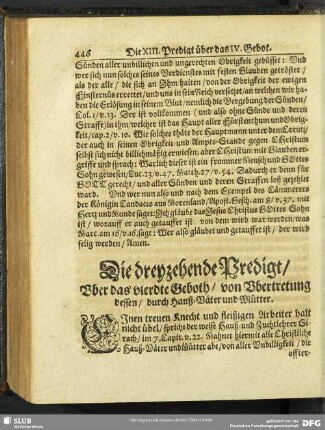 446 Die XIII. Predigt über das IV. Gebot.
Sünden aller unbillichen und ungerechten Obrigkeit gebüsset: Vnd
wer sich nun solches seines Verdienstes mit festen Glauben getröstet /
als der alle / die sich an Jhm halten / von der Obrigkeit der ewigen
Finsternüs errettet / und uns in sein Reich versetzet / an welchem wir ha-
ben die Erlösung in seinem Blut / nemlich die Vergebung der Sünden /
Col. 1 / v. 13. Der ist vollkommen (und also ohne Sünde und deren
Straffe) in ihm / welcher ist das Haupt aller Fürstenthum und Obrig-
keit / cap. 2 / v. 10. Wie solches thäte der Hauptmann unter dem Creutz /
der auch in seinen Obrigkeit- und Ampts-Stande gegen CHristum
selbst sich nicht billichmässig erwiesen / aber CHristum mit Glauben er-
griffe und sprach: Warlich dieser ist ein frommer Mensch und GOttes
Sohn gewesen / Luc. 23. v. 47. Matth. 27 / v. 54. Dadurch er denn für
GOTT gerecht / und aller Sünden und deren Straffen loß gezehlet
ward. Vnd wer nun also und nach dem Exempel des Cämmerers
der Königin Candaces aus Morenland / Apost. Gesch. am 8 / v. 37. mit
Hertz und Munde saget: Jch gläube daß Jesus Christus GOttes Sohn
ist / worauff er auch getauffet ist, von dem wird war werden / was
Marc. am 16 / v. 16. saget: Wer also gläubet und getauffet ist / der wird
selig werden / Amen.
Die dreyzehende Predigt /
Vber das vierdte Geboth / von Vbertretung
dessen / durch Hauß-Väter und Mütter.
EJnen treuen Knecht und fleißigen Arbeiter halt
nicht übel / spricht der weise Hauß- und Zuchtlehrer Si-
rach / im 7. Capit. v. 22. Mahnet hiermit alle Christliche
Hauß-Väter und Mütter abe / von aller Vnbilligkeit / die
offter-
SLUB
Wir führen Wissen.
gefördert von der
DFG
Deutschen Forschungsgemeinschaft